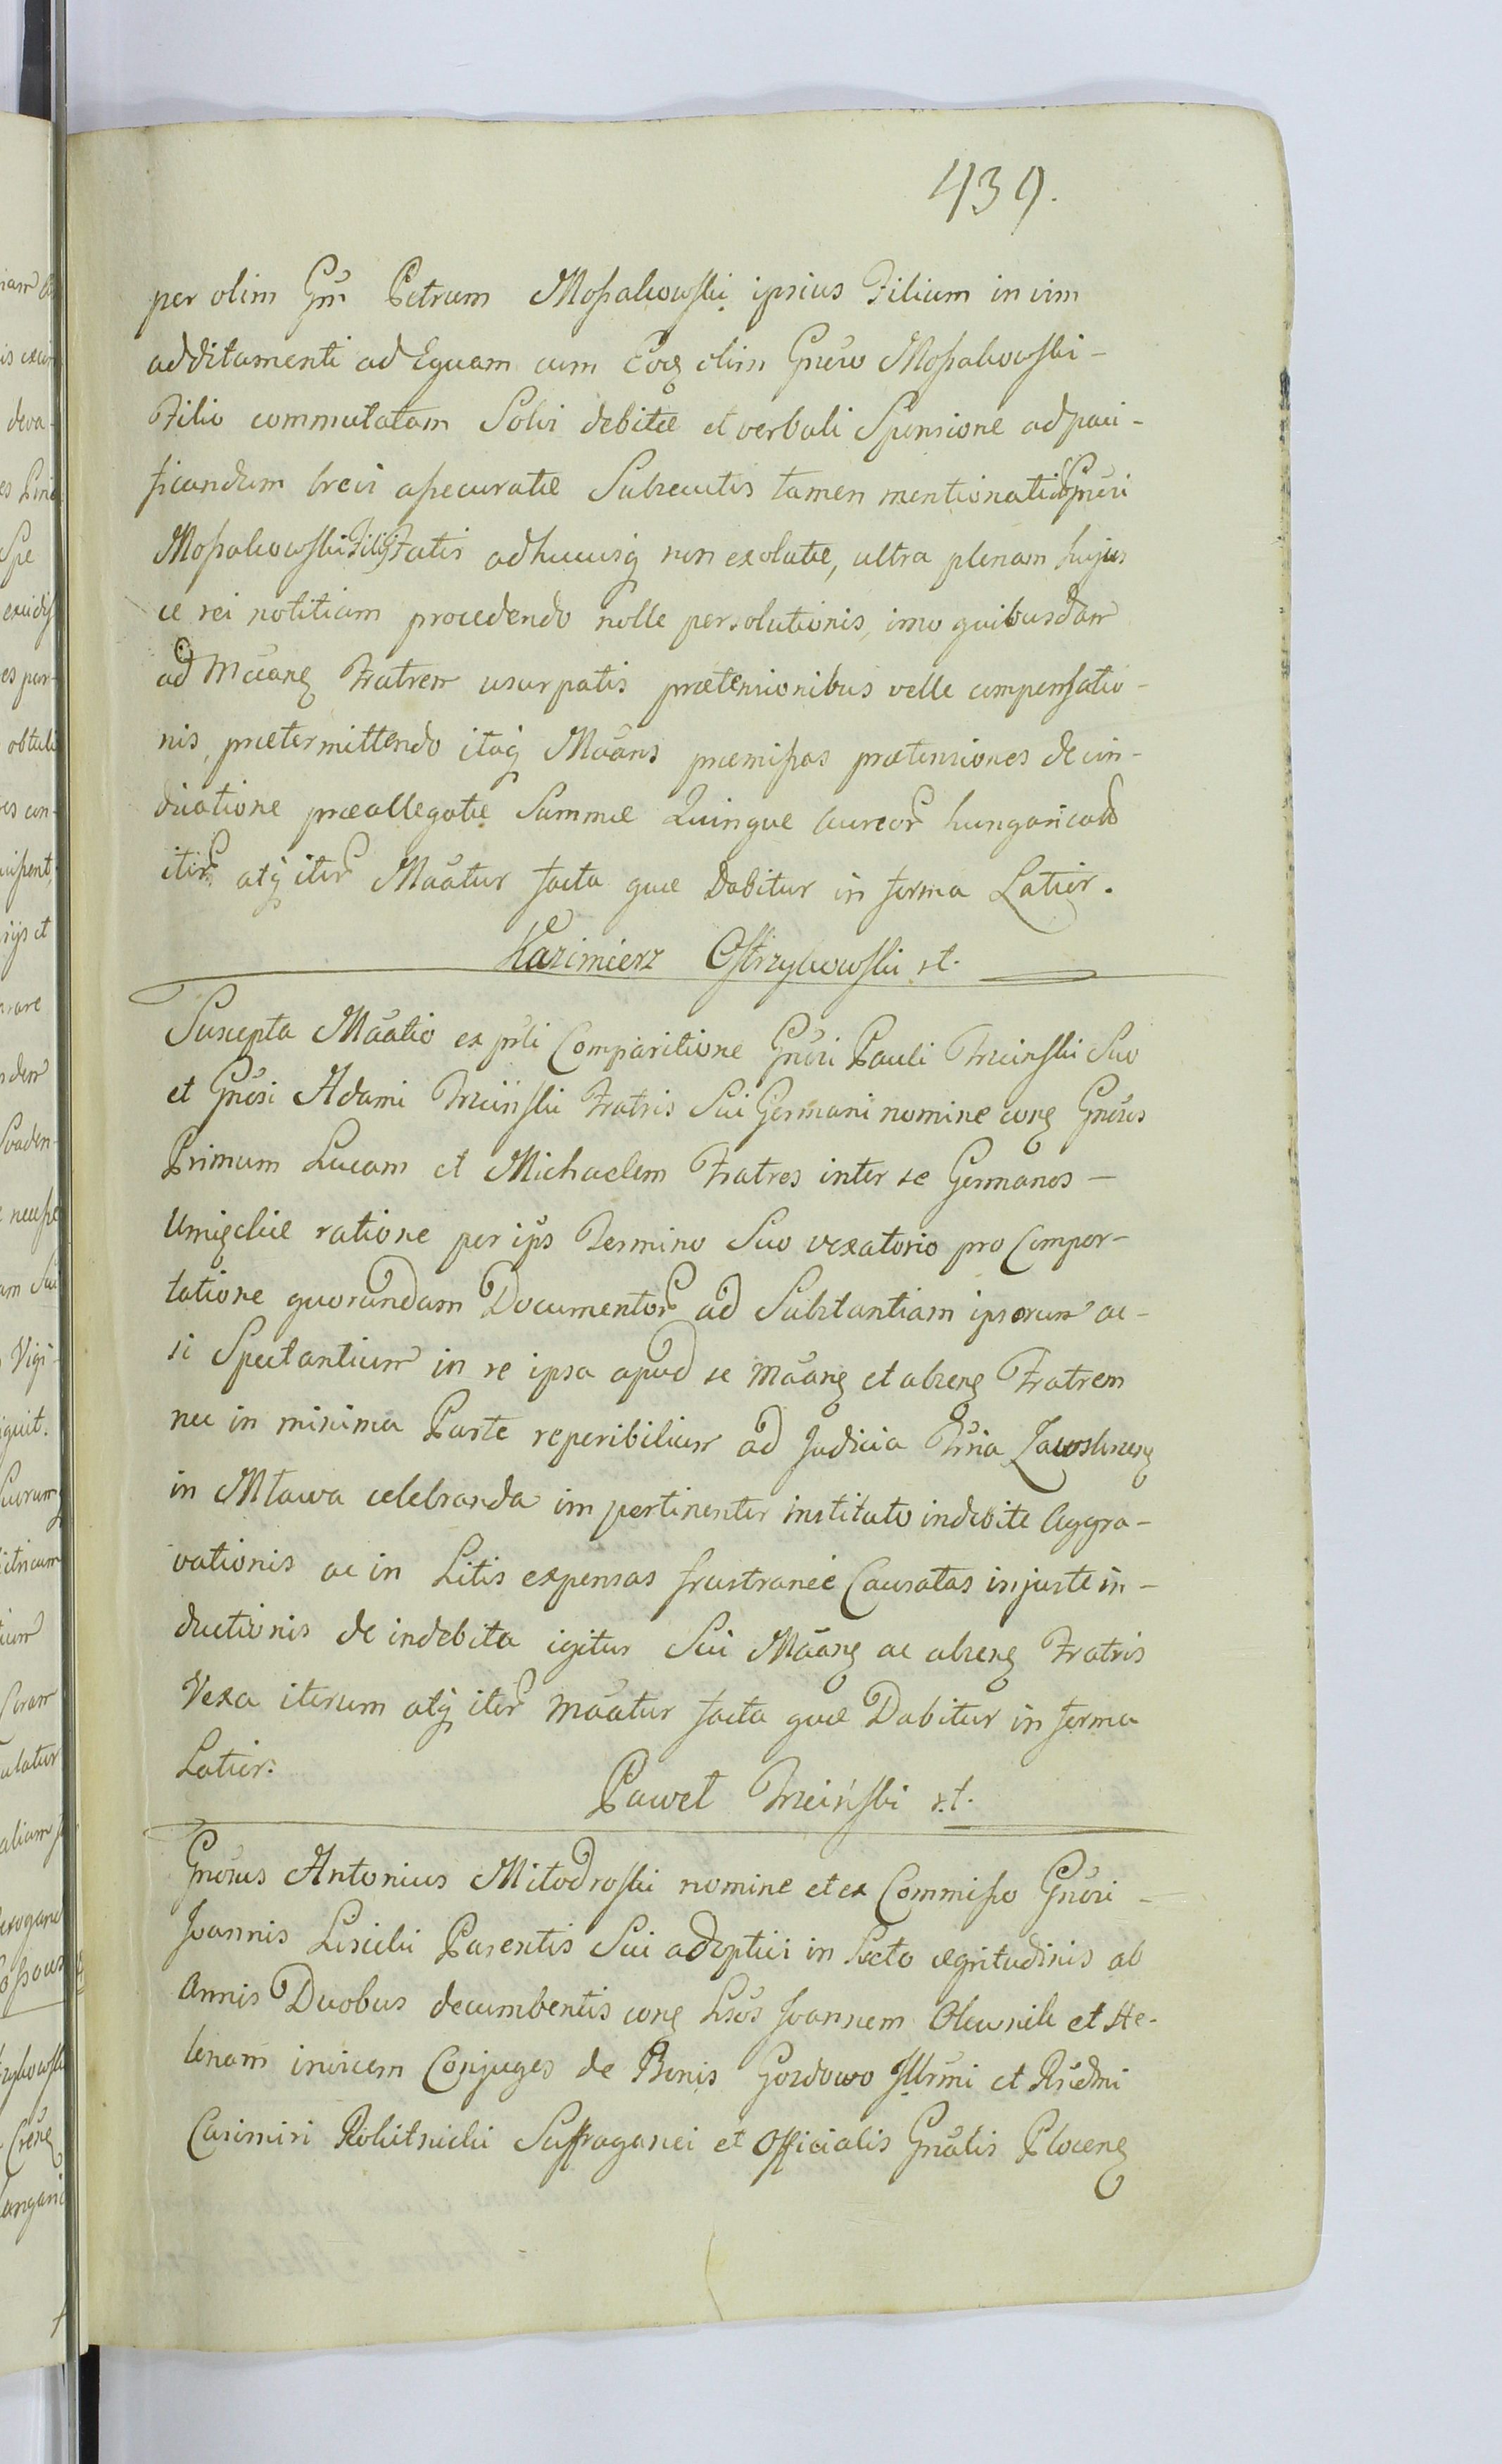 439.
per olim Gnm Petrum Mossakowski ipsius Filium in vim
additamenti ad Equam cum Eoq olim Gneroso Mossakowski -
Filio commutatam Solvi debitæ et verbali Sponsione ad paci-
ficandum brevi assecuratæ Subsecutis tamen mentionati Gnrsi
Mossakowski Filij Fatis adhucusq non exolutæ, ultra plenam hujus
ce rei notitiam procedendo nolle persolutionis, imo quibusdam
ad Mãanq Fratrem usurpatis prætensionibus velle compensatio-
nis, prætermittendo itaq Mãans præmissas prætensiones de vin-
dicatione præallegatæ Summæ Quinque Aureor hungaricalium
iter atq iter Mãatur facta quæ Dabitur in forma Latior.
Kazimierz Ostrzykowski st.
Suscepta Mãatio ex prsti Comparitione Gnrsi Pauli Trzcinski Suo
et Gnrsi Adami Trzcinski Fratris Sui Germani nomine conq Gnrsos
Primum Lucam et Michaelem Fratres inter se Germanos -
Umięckie ratione per ips Termino Suo vexatorio pro Compor-
tatione quorundam Documentor ad Substantiam ipsorum ac-
si Spectantium in re ipsa apud se Mãanq et absenq Fratrem
nec in minima Parte reperibilium ad Judicia Trria Zawskrzenq
in Mława celebranda impertinenter instituto indebite Aggra-
vationis ac in Litis expensas frustraneè Causatas injuste in-
ductionis de indebita igitur Sui Mãanq ac absenq Fratris
Vexa iterum atq iter Mãatur facta quæ Dabitur in forma
Latior:
Paweł Trzcinski st.
Gnrsus Antonius Miłodroski nomine et ex Commisso Gnrsi -
Joannis Lisicki Parentis Sui adoptivi in Lecto ægritudinis ab
Annis Duobus decumbentis conq Lsos Joannem Olewnik et He-
lenam invicem Conjuges de Bonis Gozdowo Illrmi et Rsedmi
Casimiri Rokitnicki Suffraganei et Officialis Gnralis Plocenq